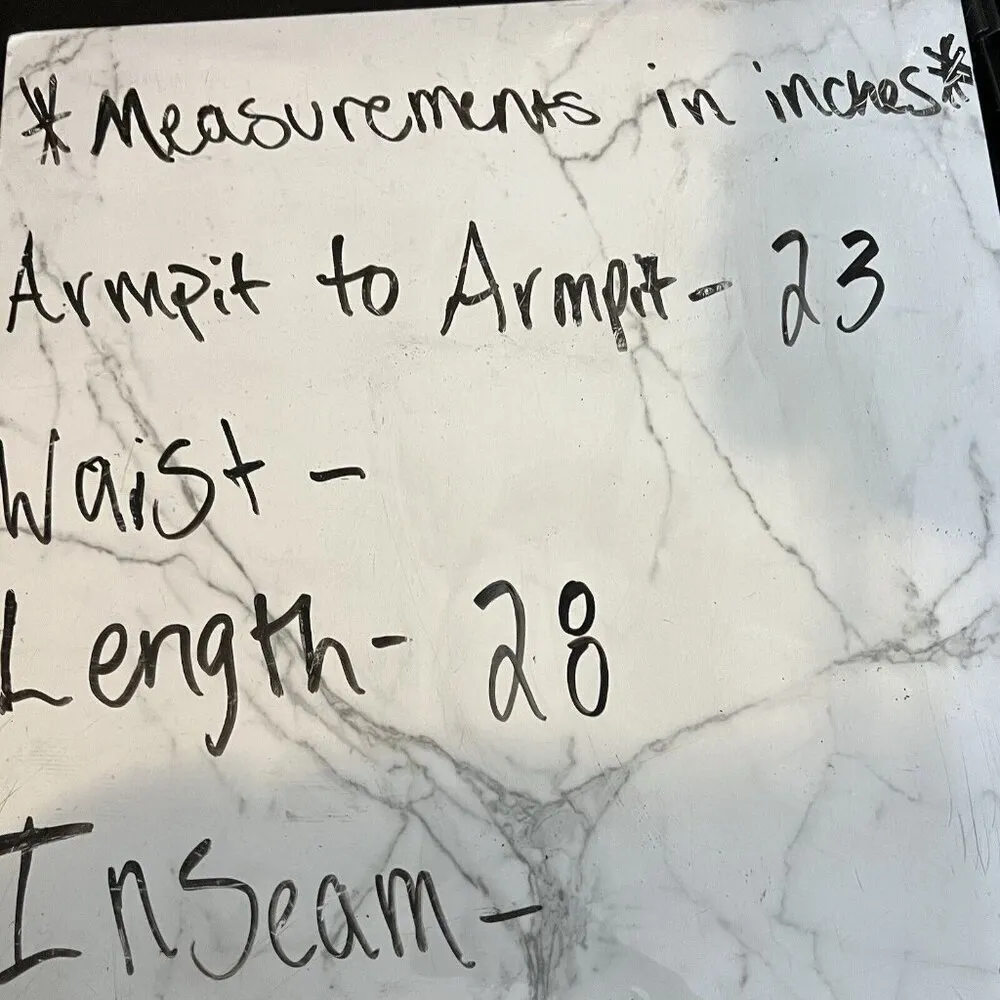 *Measurements in inches*
Armpit to Armpit- 23
Waist -
Length- 28
InSeam -